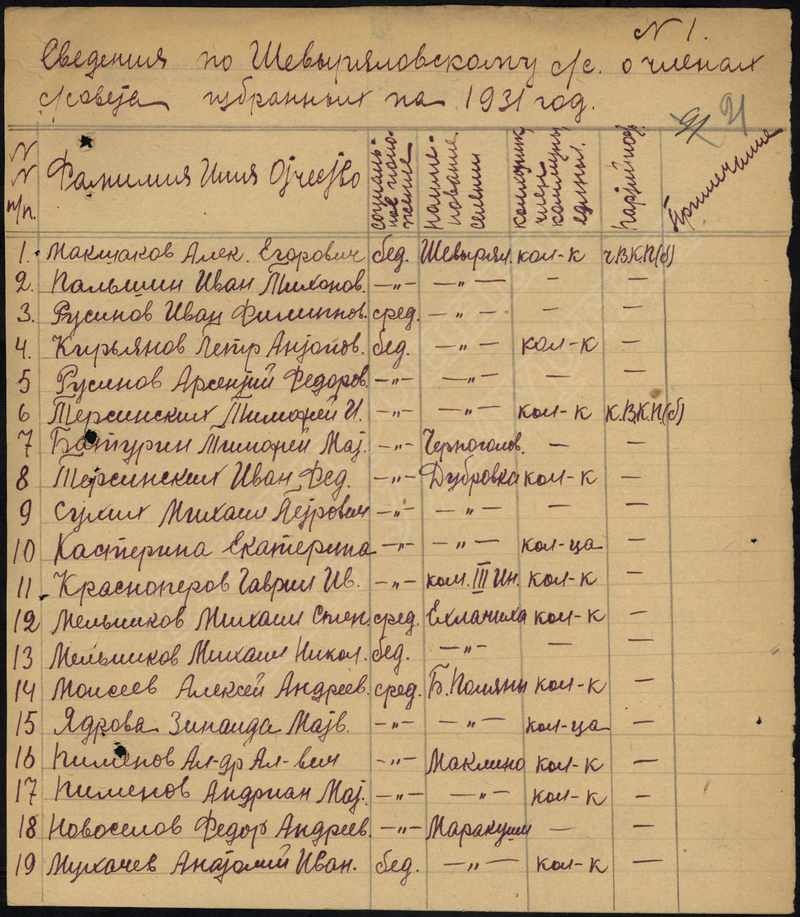 N 1.
Сведения по Шевыряловскому с/с. о членах
с/совета избранных на 1931 год.
21
N N п/п.
Фамилия Имя Отчество
социальное положение
наименование селении
колхозник член коммуны единол.
партийнос
Примечание
1. Макшаков Алек. Егорович бед. Шевырял. кол-к ч.В.К.П(б)
2. Пальшин Иван Тихонов. -„- -„- - -
3. Русинов Иван Филиппов. сред. -„- - -
4. Кирьянов Петр Антонов. бед. -„- кол-к -
5 Русинов Арсентий Федоров. -„- -„- - -
6 Терсинских Тимофей И. -„- -„- кол-к к.В.К.П.(б)
7 Батурин Тимофей Мат. -„- Черноголов. - -
8 Терсинских Иван Фед. -„- Дубровка кол-к -
9 Сухих Михаил Петрович -„- -„- - -
10 Кастерина Екатерина -„- -„- кол-ца -
11 Красноперов Гаврил Ив. -„- ком. III Ин. кол-к -
12 Мельников Михаил Степ. сред. Ехлачиха кол-к -
13 Мельников Михаил Никол. бед. -„- - -
14 Моисеев Алексей Андреев. сред. Б. Поляны кол-к -
15 Ядрова Зинаида Матв. -„- -„- кол-ца -
16 Пименов Ал-др Ал-вич -„- Маклино кол-к -
17 Пименов Андриан Мат. -„- -„- кол-к -
18 Новоселов Федор Андреев. -„- Маракуши - -
19 Мухачев Анатолий Иван. бед. -„- кол-к -